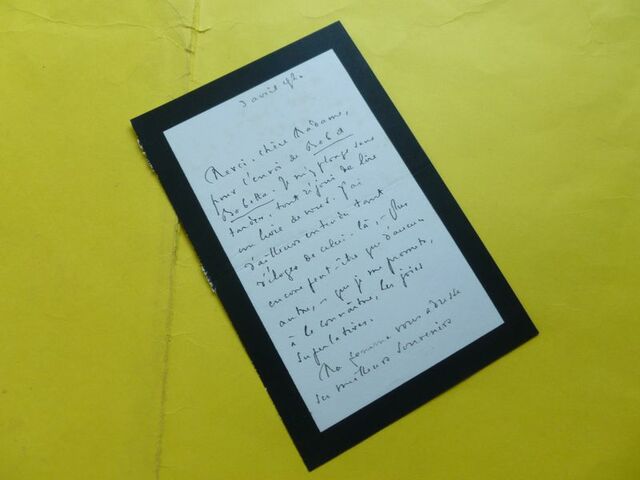 3 avril 42.
Merci, chère Madame,
pour l'envoi de
Babette. Je m'y plonge sans
tarder, tout réjoui de lire
un livre de vous. J'ai
d'ailleurs entendu tant
d'éloges de celui-là, – plus
encore peut-être que d'aucun
autre, – que je me promets,
à le connaître, les joies
superlatives.
Ma femme vous adresse
ses meilleurs souvenirs